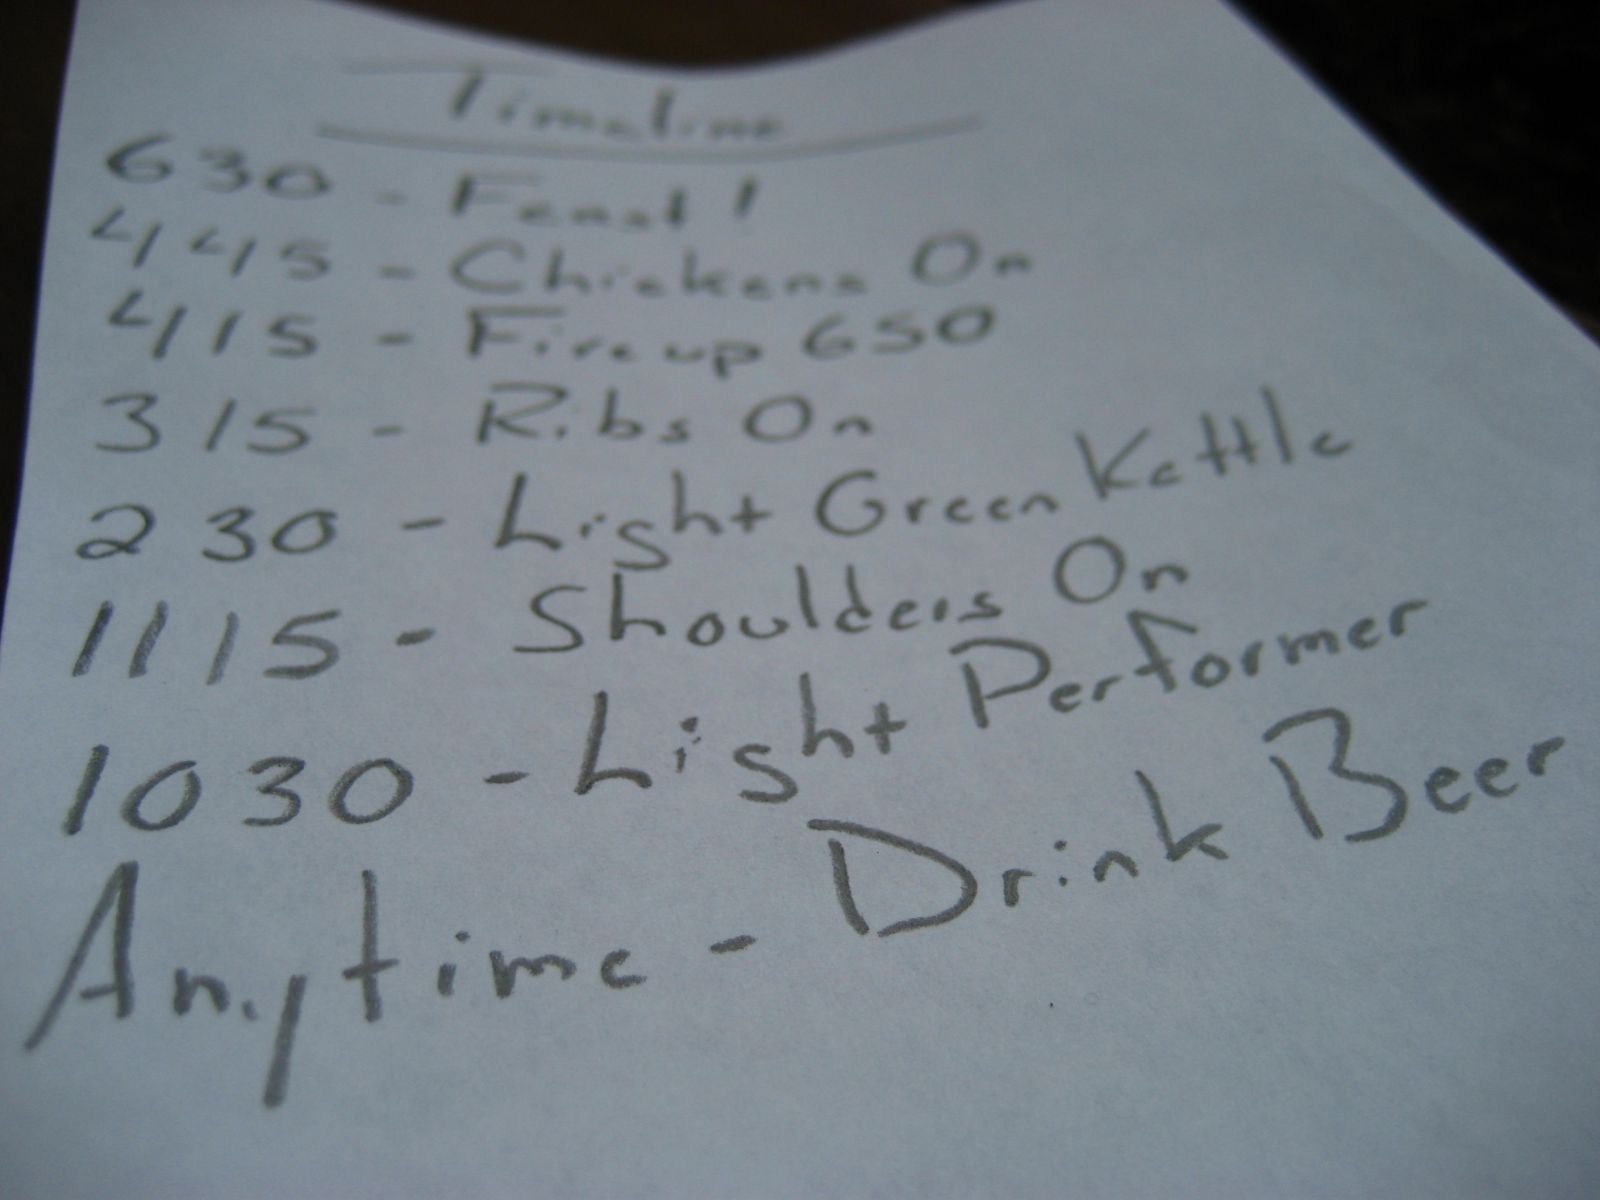 Timeline
630 - Feast!
445 - Chickens On
415 - Fire up 650
315 - Ribs On
230 - Light Green Kettle
1115 - Shoulders On
1030 - Light Performer
Anytime - Drink Beer